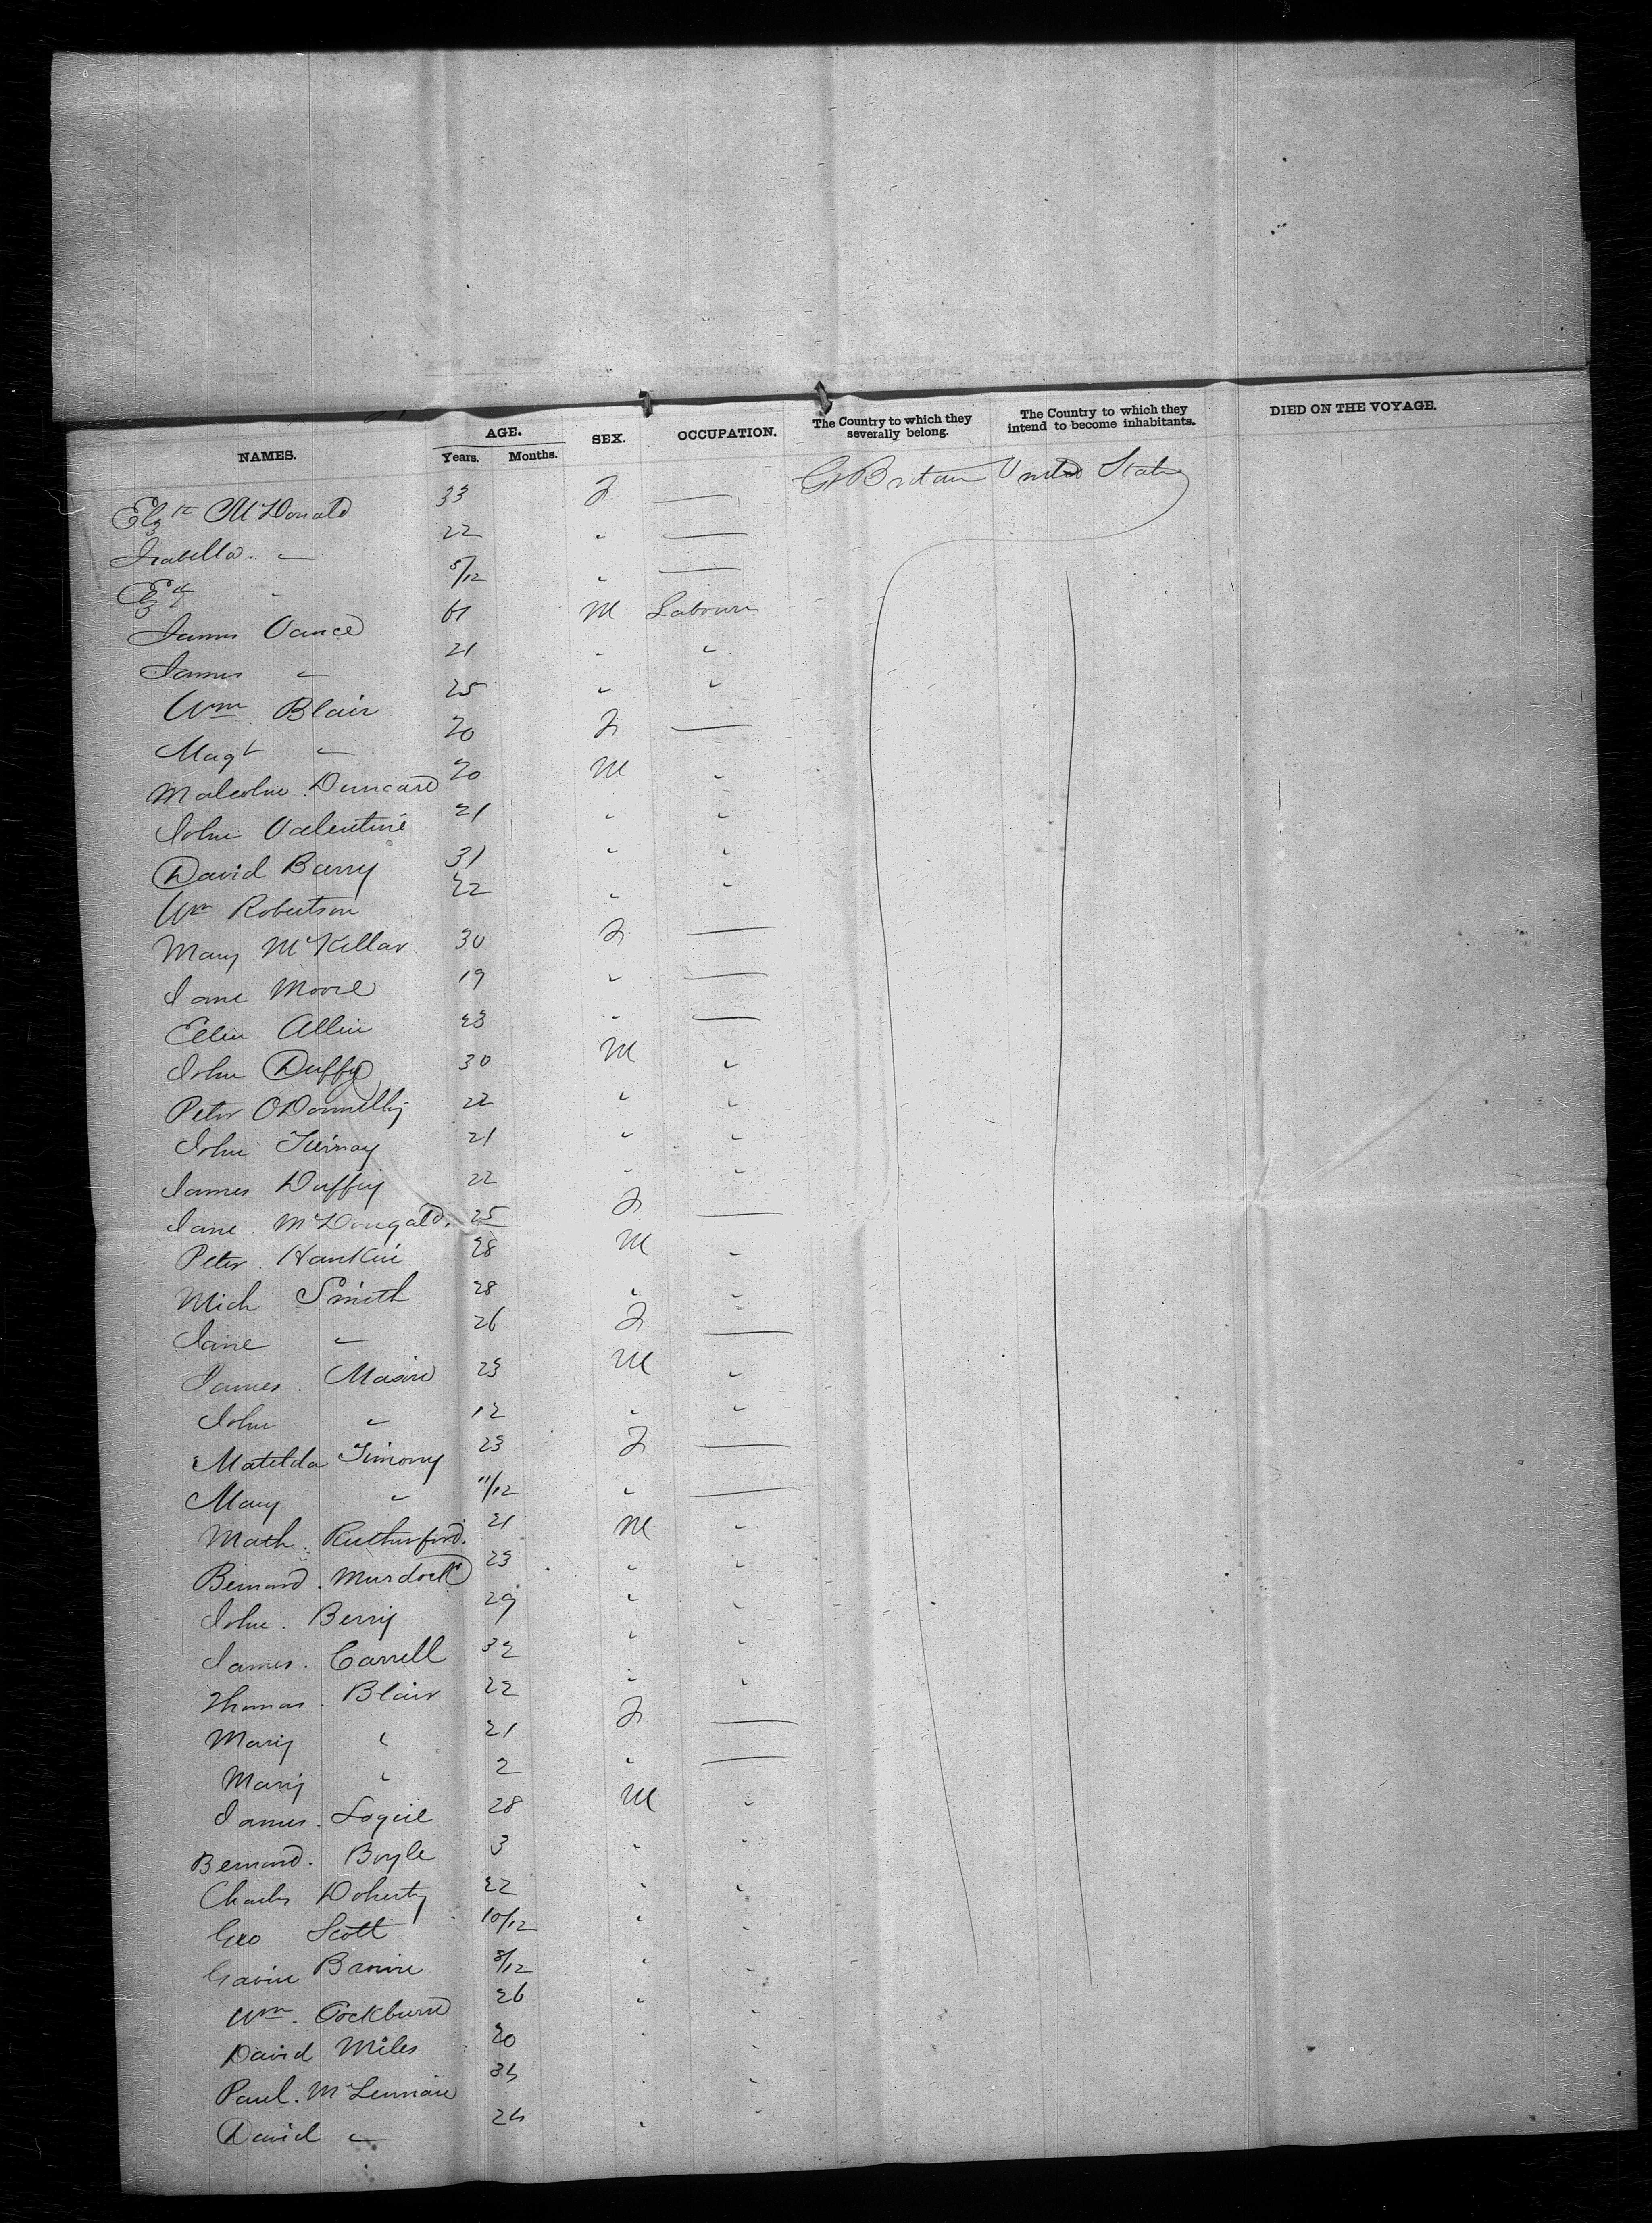 NAMES. AGE. Years. Months. SEX. OCCUPATION. The Country to which they severally belong. The Country to which they intend to become inhabitants. DIED ON THE VOYAGE.
Elzth McDonald 33 F — Gt Britain United States
Isabella " 22 " —
Elzth " 8/12 " —
James Vance 61 M Labourer
James " 21 " "
Wm Blair 25 " "
Magt " 20 F —
Malcolm Duncan 20 M "
John Valentine 21 " "
David Barry 31 " "
Wm Robertson 22 " "
Mary McKellar 30 F —
Jane Moore 19 " —
Ellen Allin 23 " —
John Duffy 30 M "
Peter ODonnelly 22 " "
John Tiernay 21 " "
James Duffy 22 " "
Jane McDougald 25 F —
Peter Hankin 28 M "
Mich Smith 28 " "
Jane " 26 F —
James Mason 23 M "
John " 12 " "
Matilda Timony 23 F —
Mary " 11/12 " —
Math. Rutherford 21 M "
Bernard Murdock 23 " "
John Berry 29 " "
James Carrell 32 " "
Thomas Blair 22 " "
Mary " 21 F —
Mary " 2 " —
James Logue 28 M "
Bernard Boyle 3 " "
Charles Doherty 22 " "
Geo Scott 10/12 " "
Gavin Brown 8/12 " "
Wm Cockburn 26 " "
David Miles 20 " "
Paul McLennan "
David " "